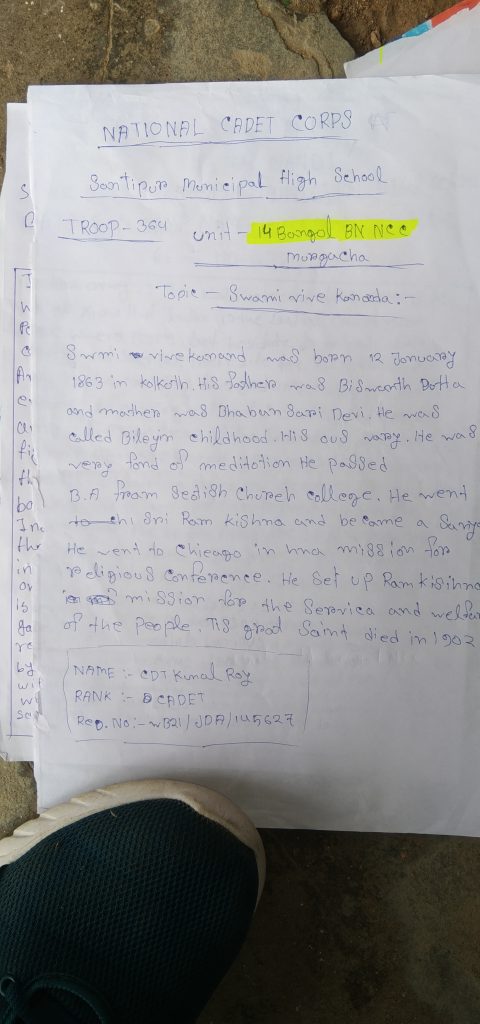 NATIONAL CADET CORPS
Santipur Municipal High School
TROOP - 364 unit - 14 Bangal BN NCC
Muragacha
Topic - Swami vive Kanada :-
Swmi vivekanand was born 12 January
1863 in kolkath. His fathers was Biswanth Dotta
and mother was Bhaban Sari Devi. He was
called Bileyin childhood. His He was
very fond of meditation He passed
B.A from Sedish Church College. He went
Sri Ram kishna and be came a
He went to Chicago in mission for
religious Conference. He Set up Ramkisihna
mission for the Servica and
of the people. Saint died in 1902
NAME :- CDT Kunal Roy
RANK :- CADET
Reg. No :- WB21/JDA/145627